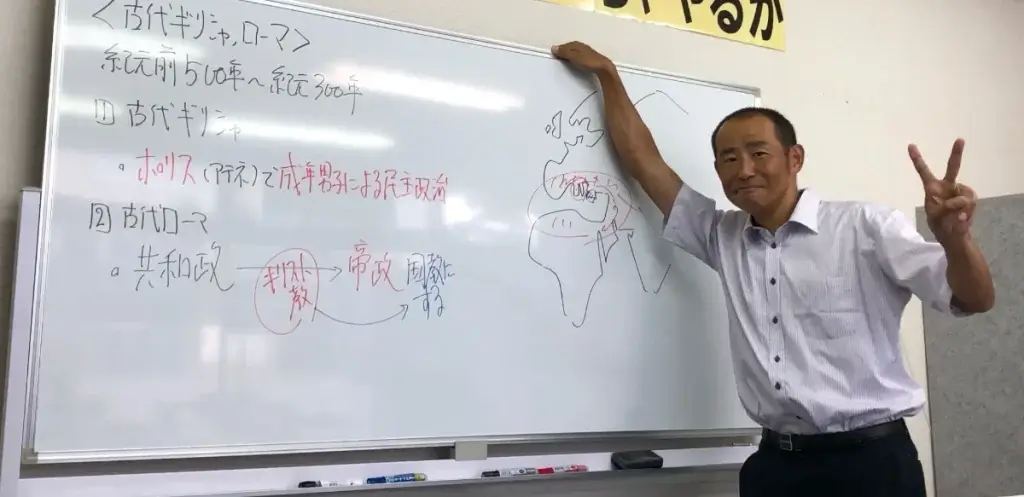 ゃ、やるか
<古代ギリシャ,ローマ>
紀元前500年~紀元300年
1 古代ギリシャ
・ポリス(アテネ)で成年男子による民主政治
2 古代ローマ
・共和政→帝政 国教にする
キリスト教